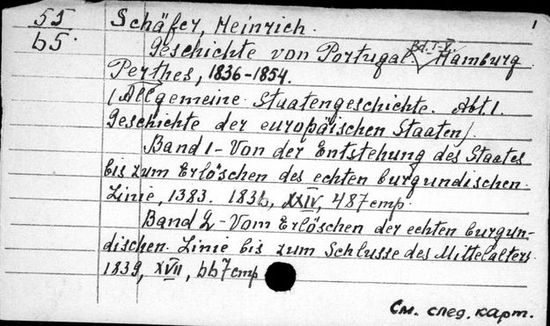 55 Schäfer, Heinrich. 1
65 Geschichte von Portugal Bd. I-V. Hamburg
Perthes, 1836-1854.
(Allgemeine Staatengeschichte. Abt. 1.
Geschichte der europäischen Staaten).
Band 1 - Von der Entstehung des Staates
bis zum Erlöschen des echten burgundischen
Linie, 1383. 1836, XXIV, 487 стр.
Band 2 - Vom Erlöschen der echten burgun-
dischen Linie bis zum Schlusse des Mittelalters
1839, XVII, 667 стр
См. след. карт.